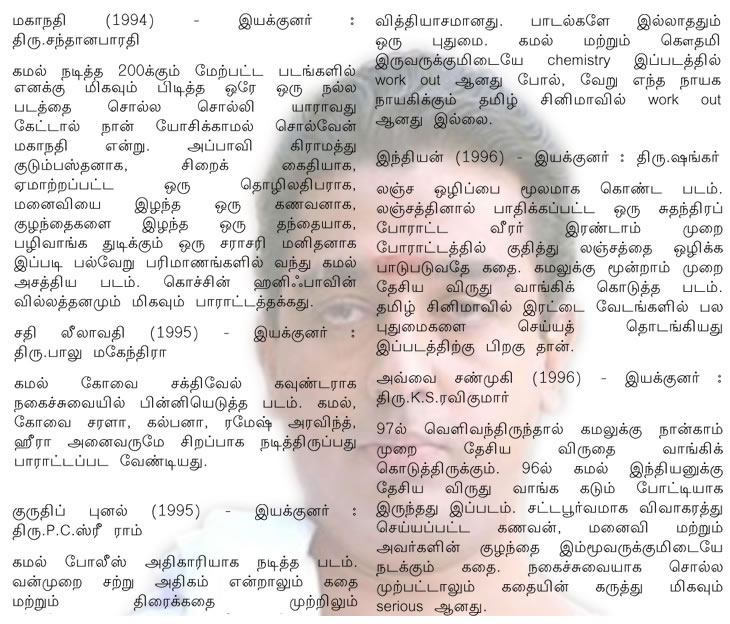 மகாநதி (1994) - இயக்குனர் :
திரு.சந்தானபாரதி
கமல் நடித்த 200க்கும் மேற்பட்ட படங்களில்
எனக்கு மிகவும் பிடித்த ஒரே ஒரு நல்ல
படத்தை சொல்ல சொல்லி யாராவது
கேட்டால் நான் யோசிக்காமல் சொல்வேன்
மகாநதி என்று. அப்பாவி கிராமத்து
குடும்பஸ்தனாக, சிறைக் கைதியாக,
ஏமாற்றப்பட்ட ஒரு தொழிலதிபராக,
மனைவியை இழந்த ஒரு கணவனாக,
குழந்தைகளை இழந்த ஒரு தந்தையாக,
பழிவாங்க துடிக்கும் ஒரு சராசரி மனிதனாக
இப்படி பல்வேறு பரிமாணங்களில் வந்து கமல்
அசத்திய படம். கொச்சின் ஹனிஃபாவின்
வில்லத்தனமும் மிகவும் பாராட்டத்தக்கது.
சதி லீலாவதி (1995) - இயக்குனர் :
திரு.பாலு மகேந்திரா
கமல் கோவை சக்திவேல் கவுண்டராக
நகைச்சுவையில் பின்னியெடுத்த படம். கமல்,
கோவை சரளா, கல்பனா, ரமேஷ் அரவிந்த்,
ஹீரா அனைவருமே சிறப்பாக நடித்திருப்பது
பாராட்டப்பட வேண்டியது.
குருதிப் புனல் (1995) - இயக்குனர் :
திரு.P.C.ஸ்ரீ ராம்
கமல் போலீஸ் அதிகாரியாக நடித்த படம்.
வன்முறை சற்று அதிகம் என்றாலும் கதை
மற்றும் திரைக்கதை முற்றிலும்
வித்தியாசமானது. பாடல்களே இல்லாததும்
ஒரு புதுமை. கமல் மற்றும் கௌதமி
இருவருக்குமிடையே chemistry இப்படத்தில்
work out ஆனது போல், வேறு எந்த நாயக
நாயகிக்கும் தமிழ் சினிமாவில் work out
ஆனது இல்லை.
இந்தியன் (1996) - இயக்குனர் : திரு.ஷங்கர்
லஞ்ச ஒழிப்பை மூலமாக கொண்ட படம்.
லஞ்சத்தினால் பாதிக்கப்பட்ட ஒரு சுதந்திரப்
போராட்ட வீரர் இரண்டாம் முறை
போராட்டத்தில் குதித்து லஞ்சத்தை ஒழிக்க
பாடுபடுவதே கதை. கமலுக்கு மூன்றாம் முறை
தேசிய விருது வாங்கிக் கொடுத்த படம்.
தமிழ் சினிமாவில் இரட்டை வேடங்களில் பல
புதுமைகளை செய்யத் தொடங்கியது
இப்படத்திற்கு பிறகு தான்.
அவ்வை சண்முகி (1996) - இயக்குனர் :
திரு.K.S.ரவிகுமார்
97ல் வெளிவந்திருந்தால் கமலுக்கு நான்காம்
முறை தேசிய விருதை வாங்கிக்
கொடுத்திருக்கும். 96ல் கமல் இந்தியனுக்கு
தேசிய விருது வாங்க கடும் போட்டியாக
இருந்தது இப்படம். சட்டபூர்வமாக விவாகரத்து
செய்யப்பட்ட கணவன், மனைவி மற்றும்
அவர்களின் குழந்தை இம்மூவருக்குமிடையே
நடக்கும் கதை. நகைச்சுவையாக சொல்ல
முற்பட்டாலும் கதையின் கருத்து மிகவும்
serious ஆனது.